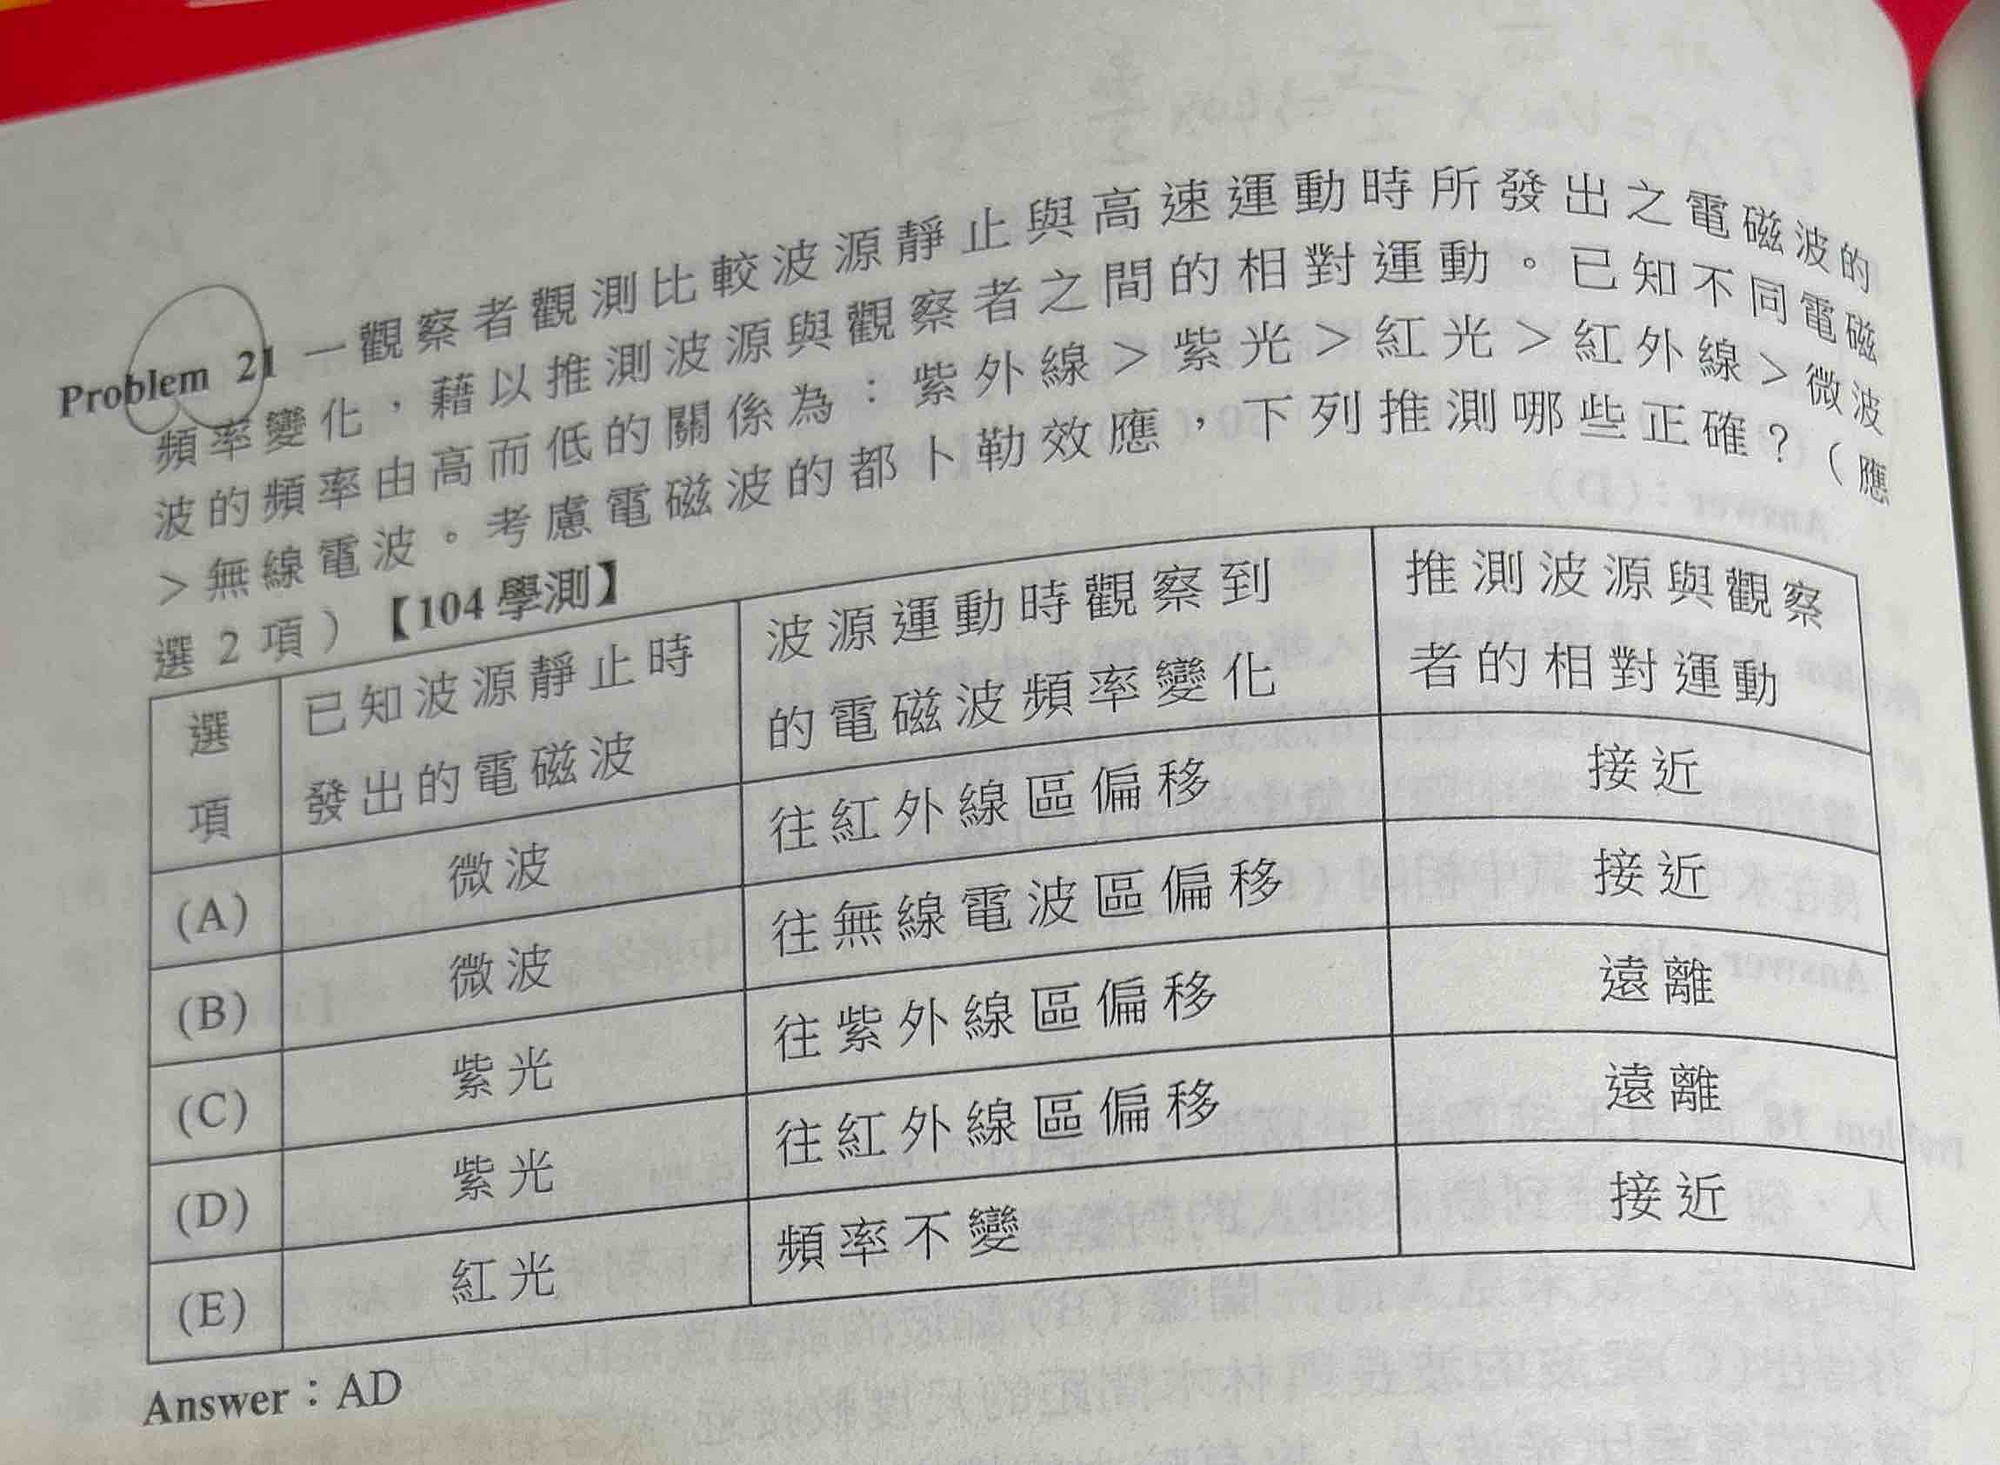 Problem 21 一觀察者觀測比較波源靜止與高速運動時所發出之電磁波的
頻率變化，藉以推測波源與觀察者之間的相對運動。已知不同電磁
波的頻率由高而低的關係為：紫外線＞紫光＞紅光＞紅外線＞微波
＞無線電波。考慮電磁波的都卜勒效應，下列推測哪些正確？（應
選 2 項）【104 學測】
選項 已知波源靜止時發出的電磁波 波源運動時觀察到的電磁波頻率變化 推測波源與觀察者的相對運動
(A) 微波 往紅外線區偏移 接近
(B) 微波 往無線電波區偏移 接近
(C) 紫光 往紫外線區偏移 遠離
(D) 紫光 往紅外線區偏移 遠離
(E) 紅光 頻率不變 接近
Answer：AD